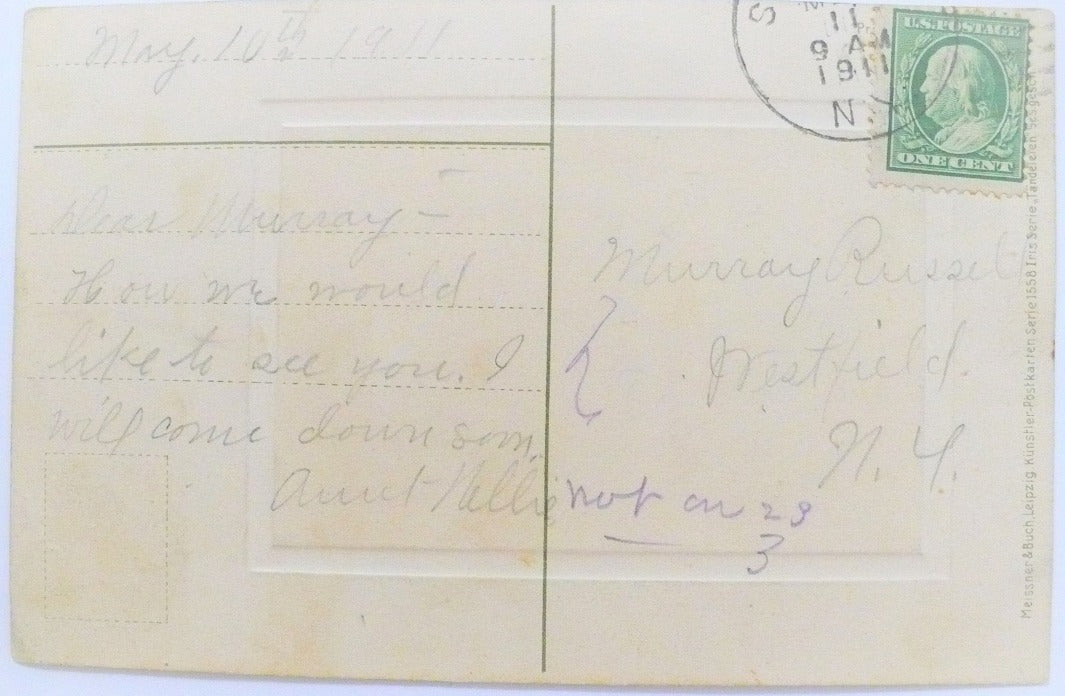 May, 10th 1911
Dear Murray –
How we would
like to see you. I
will come down soon.
Aunt Nellie
S
M
11
9 AM
1911
N Y
U.S. POSTAGE
ONE CENT
Murray Russell
Westfield.
N. Y.
not on 23
3
Meissner & Buch, Leipzig, Künstler-Postkarten Serie 1558 Iris Serie „Tändeleien